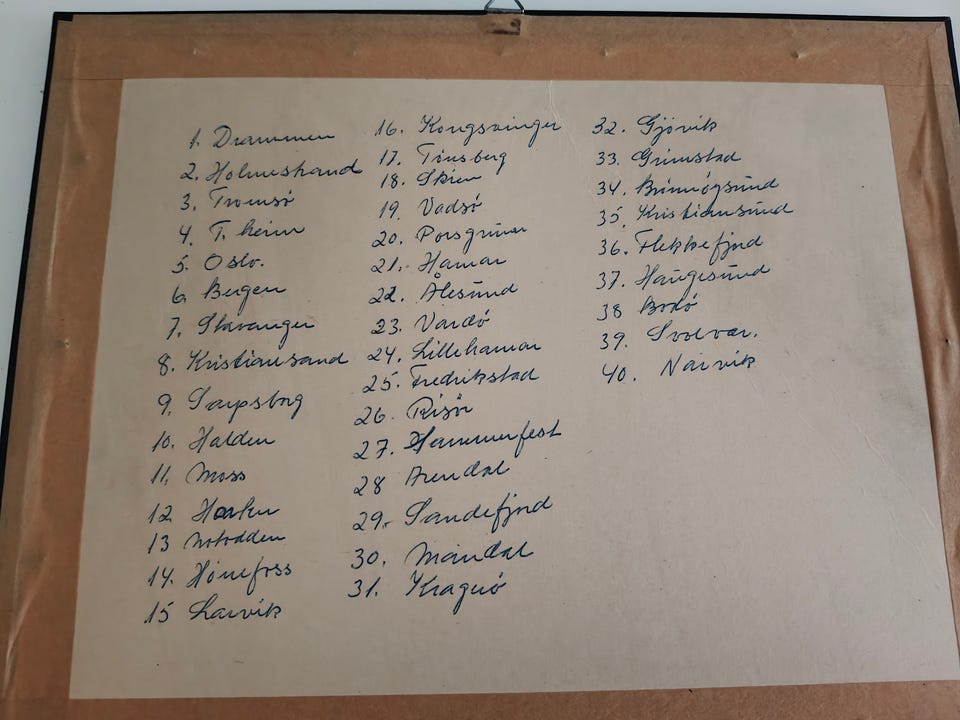 1. Drammen
2. Holmestrand
3. Tromsø
4. T. heim
5. Oslo.
6. Bergen
7. Stavanger
8. Kristiansand
9. Sarpsborg
10. Halden
11. Moss
12
13 Notodden
14. Hønefoss
15 Larvik
16. Kongsvinger
17. Tønsberg
18. Skien
19. Vadsø
20. Porsgrunn
21. Hamar
22. Ålesund
23. Vardø
24. Lillehamar
25. Fredrikstad
26. Risør
27. Hammerfest
28 Arendal
29. Sandefjord
30. Mandal
31. Kragerø
32. Gjøvik
33. Grimstad
34. Brønnøysund
35. Kristiansund
36. Flekkefjord
37. Haugesund
38 Bodø
39. Svolvær.
40. Narvik